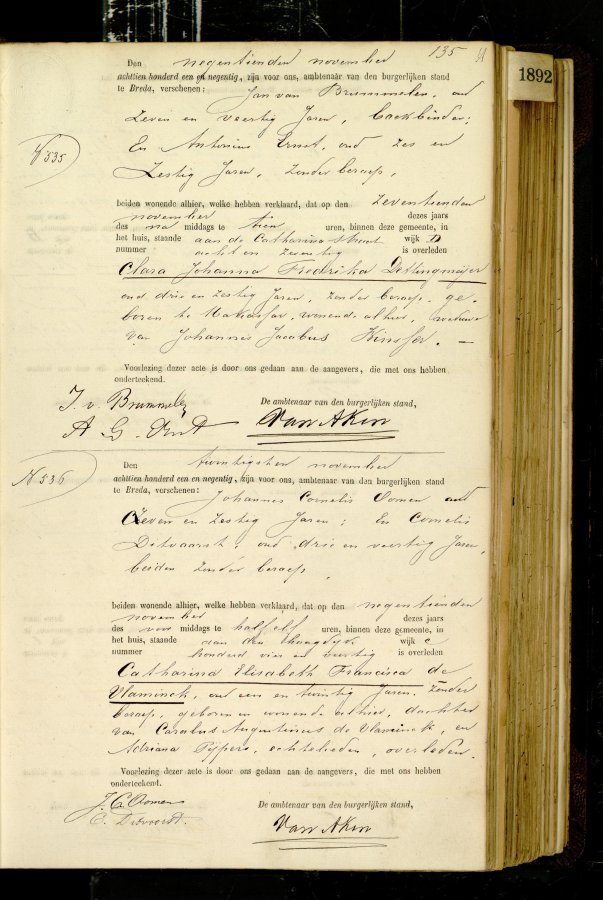 135
1892
Den negentienden november
achttien honderd een en negentig, zijn voor ons, ambtenaar van den burgerlijken stand
te Breda, verschenen: Jan van Brummelen, oud
zeven en veertig Jaren, boekbinder;
En Antonius Ernst, oud zes en
N 535
Zestig Jaren, zonder beroep,
beiden wonende alhier, welke hebben verklaard, dat op den zeventienden
november dezes jaars
des na middags te tien uren, binnen deze gemeente, in
het huis, staande aan de Catharina straat wijk D
nummer acht en zeventig is overleden
Clara Johanna Fredrika Dettingmeijer
oud drie en zestig Jaren, zonder beroep, ge-
boren te Makasser, wonende alhier, weduwe
van Johannis Jacobus Kinsfer. —
Voorlezing dezer acte is door ons gedaan aan de aangevers, die met ons hebben
onderteekend.
De ambtenaar van den burgerlijken stand,
J. v. Brummelen
A G Ernst
Van Aken
N 536
Den twintigsten november
achttien honderd een en negentig, zijn voor ons, ambtenaar van den burgerlijken stand
te Breda, verschenen: Johannes Cornelis Oomen oud
Zeven en zestig Jaren; En Cornelis
Ditvoorst, oud drie en veertig Jaren,
beiden zonder beroep,
beiden wonende alhier, welke hebben verklaard, dat op den negentienden
november dezes jaars
des voor middags te half elf uren, binnen deze gemeente, in
het huis, staande aan den Hoogdijk wijk C
nummer honderd vier en veertig is overleden
Catharina Elisabeth Francisca de
Vlaminck, oud een en twintig Jaren, zonder
beroep, geboren en wonende alhier, dochter
van Carolus Augustinus de Vlaminck, en
Adriana Pijpers, echtelieden, overleden.
Voorlezing dezer acte is door ons gedaan aan de aangevers, die met ons hebben
onderteekend.
De ambtenaar van den burgerlijken stand,
J. C. Oomen
C. Ditvoorst.
Van Aken